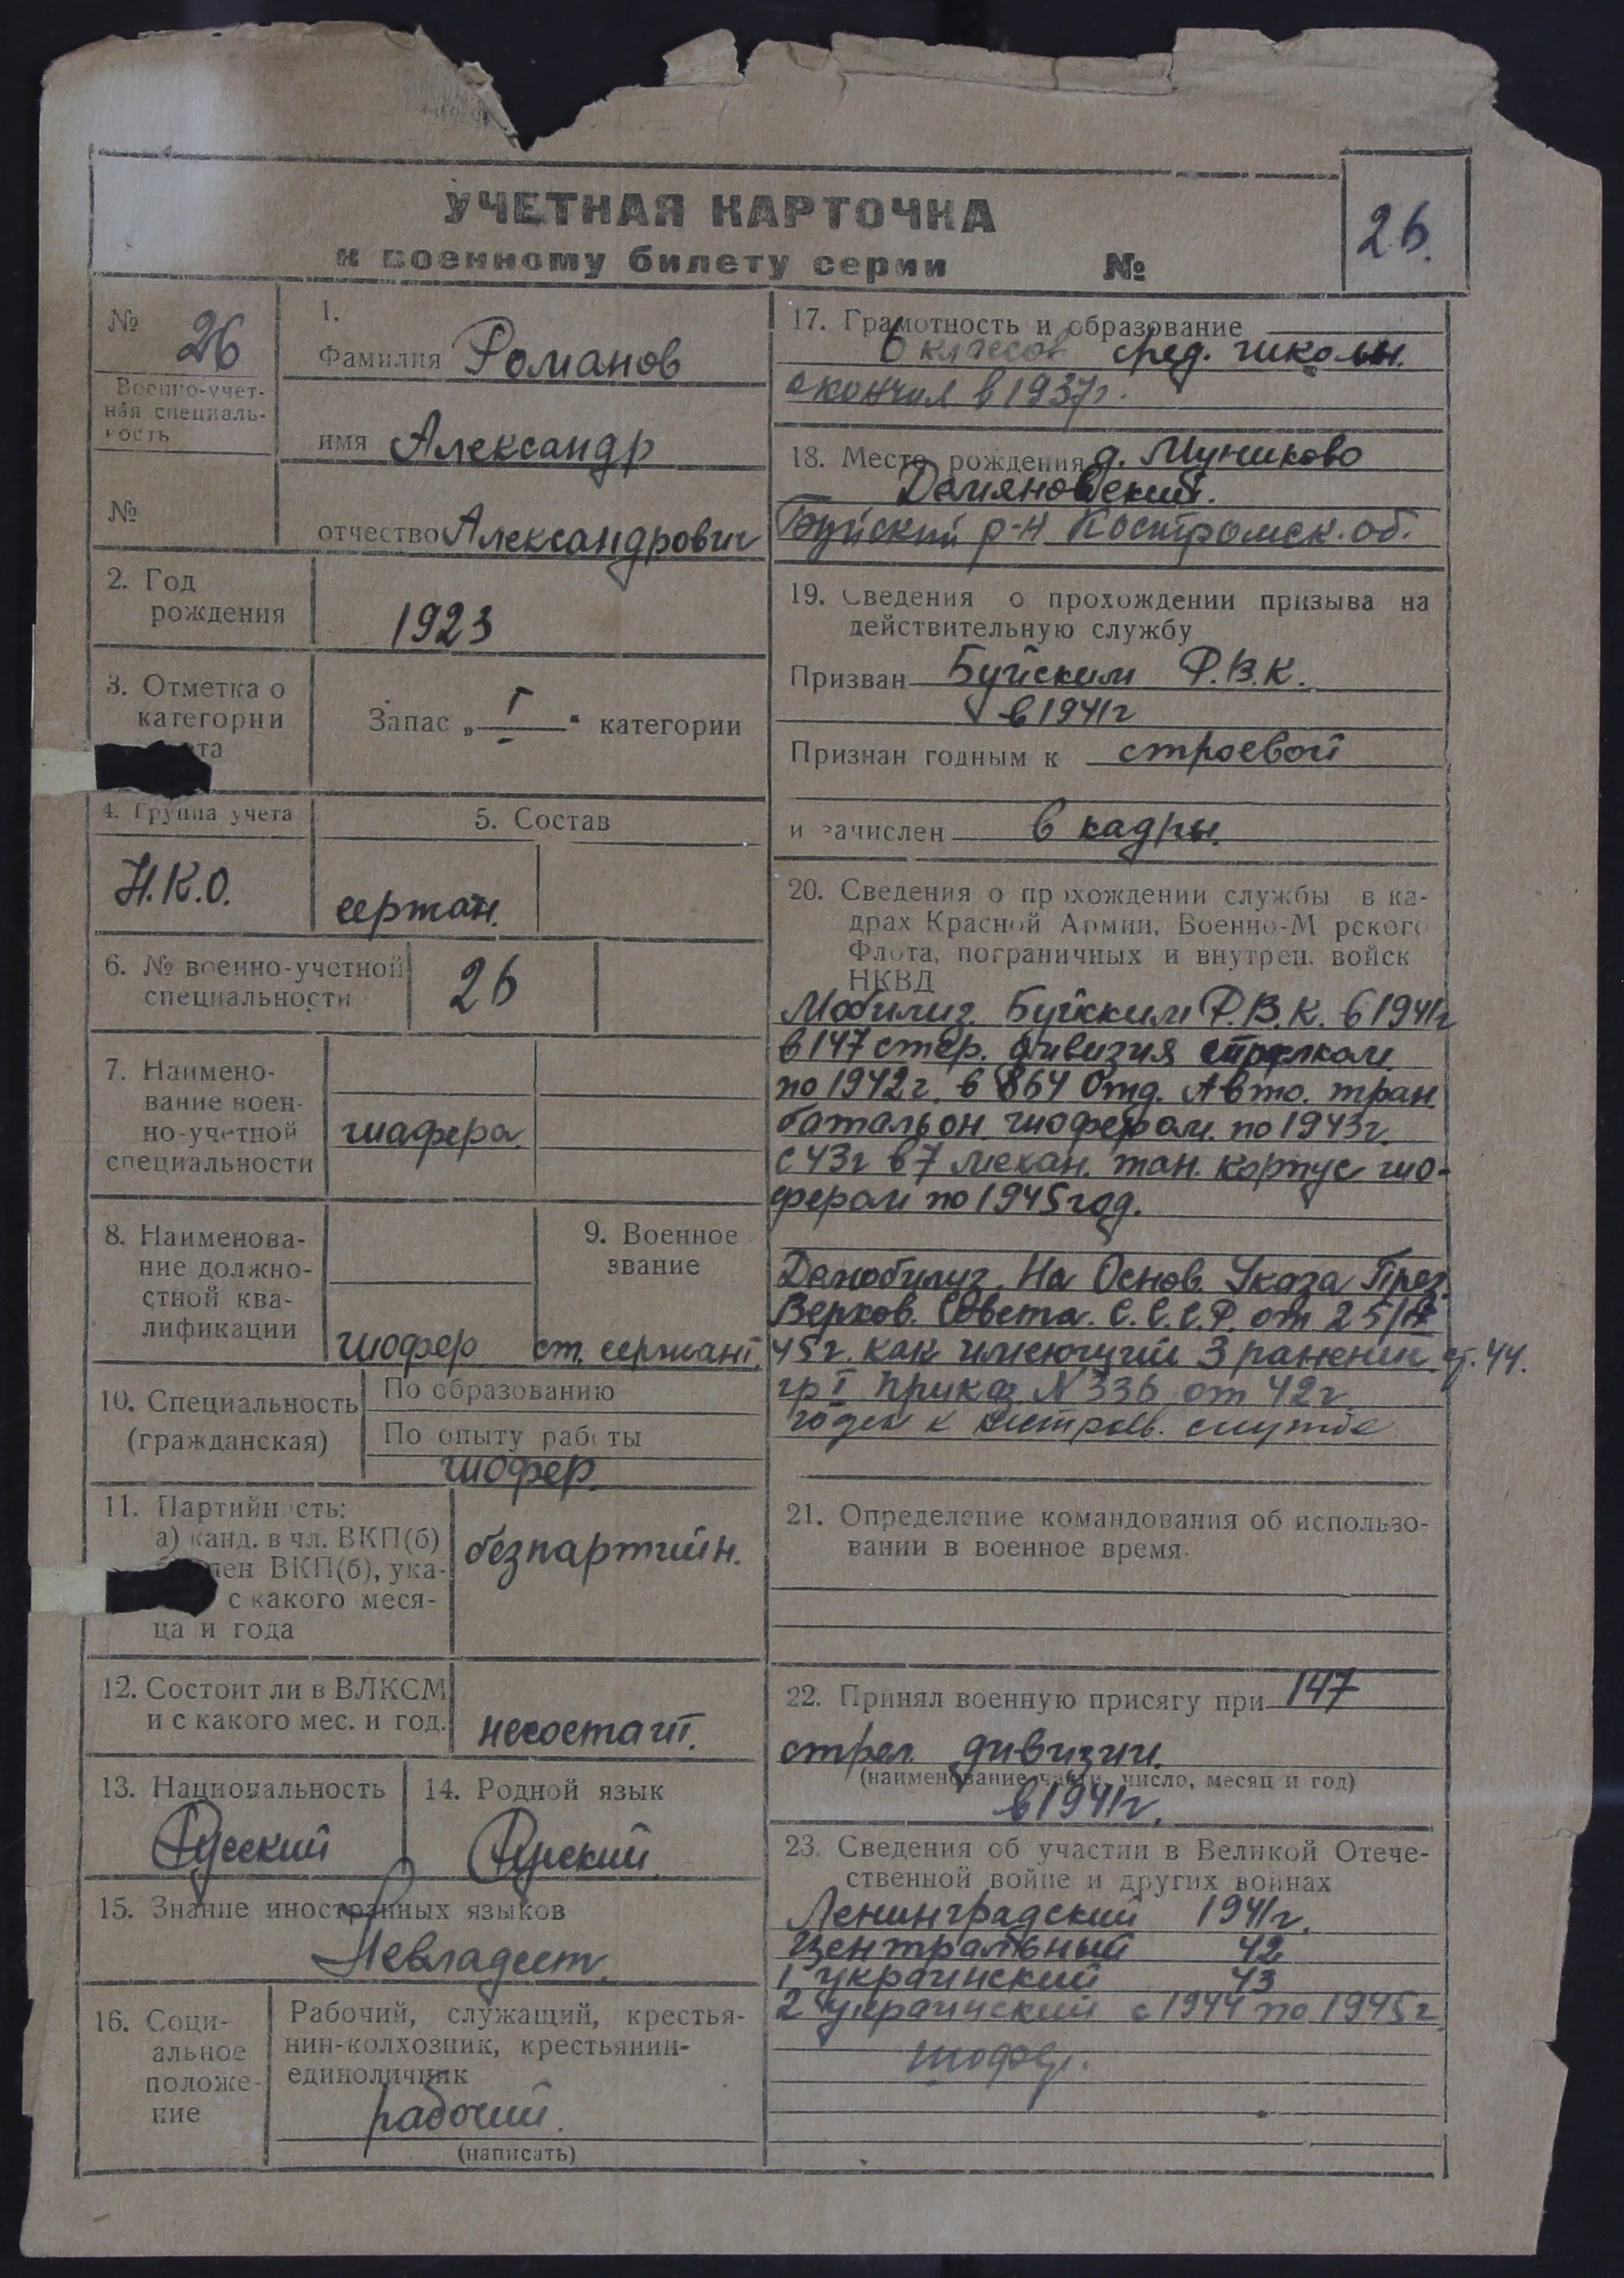 УЧЕТНАЯ КАРТОЧКА
к военному билету серии №
26.
№ 26
Военно-учет-
ная специаль-
ность
№
1.
Фамилия Романов
имя Александр
отчество Александрович
2. Год
рождения
1923
3. Отметка о
категории
та
Запас „ I “ категории
4. Группа учета
Н.К.О.
5. Состав
сержан.
6. № военно-учетной
специальности
26
7. Наимено-
вание воен-
но-учетной
специальности
шафера.
8. Наименова-
ние должно-
стной ква-
лификации
шофер
9. Военное
звание
ст. сержант.
10. Специальность
(гражданская)
По образованию
По опыту работы
шофер.
11. Партийность:
а) канд. в чл. ВКП(б)
лен ВКП(б), ука-
с какого меся-
ца и года
безпартийн.
12. Состоит ли в ВЛКСМ
и с какого мес. и год.
несостаит.
13. Национальность
Русский
14. Родной язык
Руский.
15. Знание иностранных языков
Невладеет.
16. Соци-
альное
положе-
ние
Рабочий, служащий, крестья-
нин-колхозник, крестьянин-
единоличник
рабочий.
(написать)
17. Грамотность и образование
6 классов сред. школы.
окончил в 1937г.
18. Место рождения д. Муниково
Демяновский.
Буйский р-н Костромск. об.
19. Сведения о прохождении призыва на
действительную службу
Призван Буйским Р.В.К.
в 1941г
Признан годным к строевой
и зачислен в кадры.
20. Сведения о прохождении службы в ка-
драх Красной Армии, Военно-Морского
Флота, пограничных и внутрен. войск
НКВД
Мобилиз. Буйским Р.В.К. в 1941г
в 147 стер. дивизия стрелком.
по 1942г. в 864 Отд. Авто. тран.
батальон. шофером. по 1943г.
с 43г в 7 механ. тан. корпус шо-
фером по 1945год.
Демобилиз. На Основ. Указа През.
Верхов. Совета. С.С.С.Р. от 25/
45г. как имеющий 3 ранении ст. 44.
гр I приказ N 336 от 42г.
годен к нестроев. службе
21. Определение командования об использо-
вании в военное время.
22. Принял военную присягу при 147
стрел. дивизии.
(наименование части, число, месяц и год)
в 1941г.
23. Сведения об участии в Великой Отече-
ственной войне и других войнах
Ленинградский 1941г.
Центральный 42
1 украинский 43
2 украинский с 1944 по 1945г.
шофер.